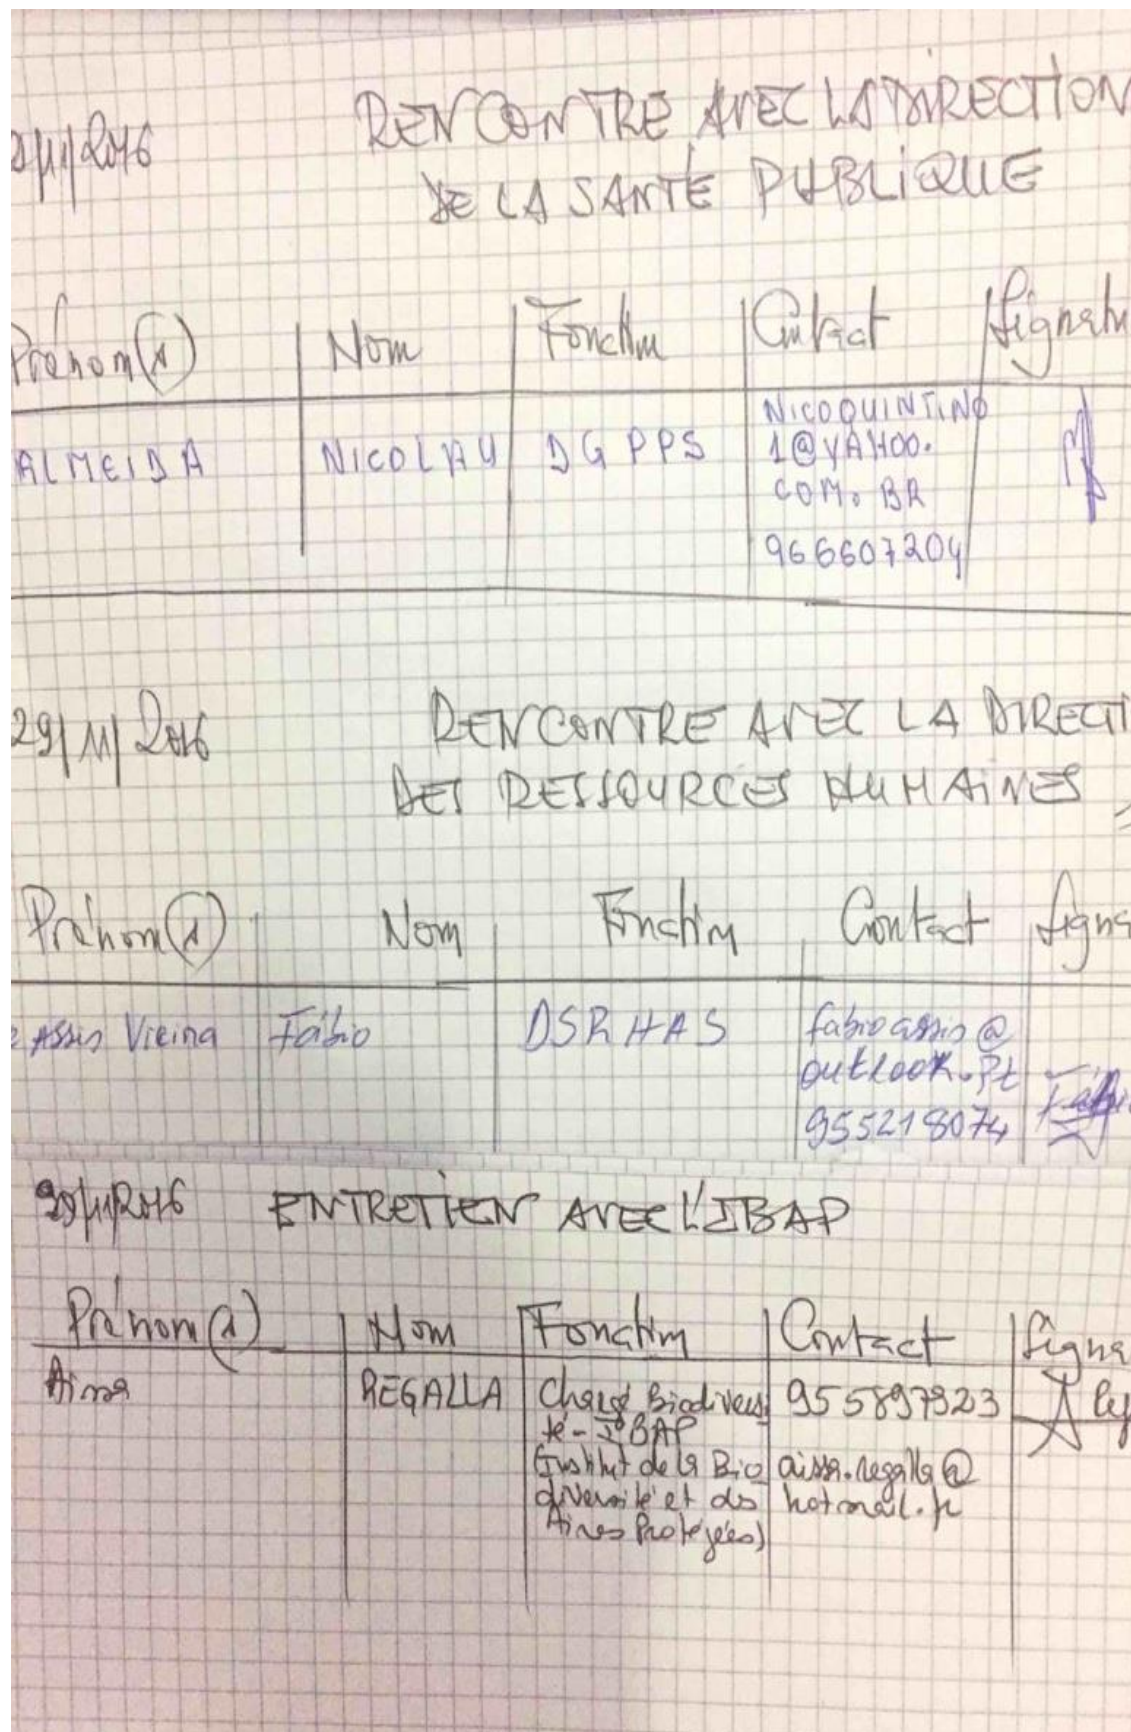 /11/2016 RENCONTRE AVEC LA DIRECTION
DE LA SANTÉ PUBLIQUE
Prénom(s) Nom Fonction Contact Signatu
ALMEIDA NICOLAU DGPPS NICOQUINTINO
1@YAHOO.
COM.BR
966607204
29/11/2016 RENCONTRE AVEC LA DIRECTI
DES RESSOURCES HUMAINES
Prénom(s) Nom Fonction Contact Signa
e Assis Vieira Fábio DSRHAS fabioassis@
outlook.pt
955218074
29/11/2016 ENTRETIEN AVEC L'IBAP
Prénom(s) Nom Fonction Contact Signa
Aissa REGALLA Chargé Biodiversi 955897923
té - IBAP
(Institut de la Bio aissa.regalla@
diversité et des hotmail.fr
Aires Protégées)